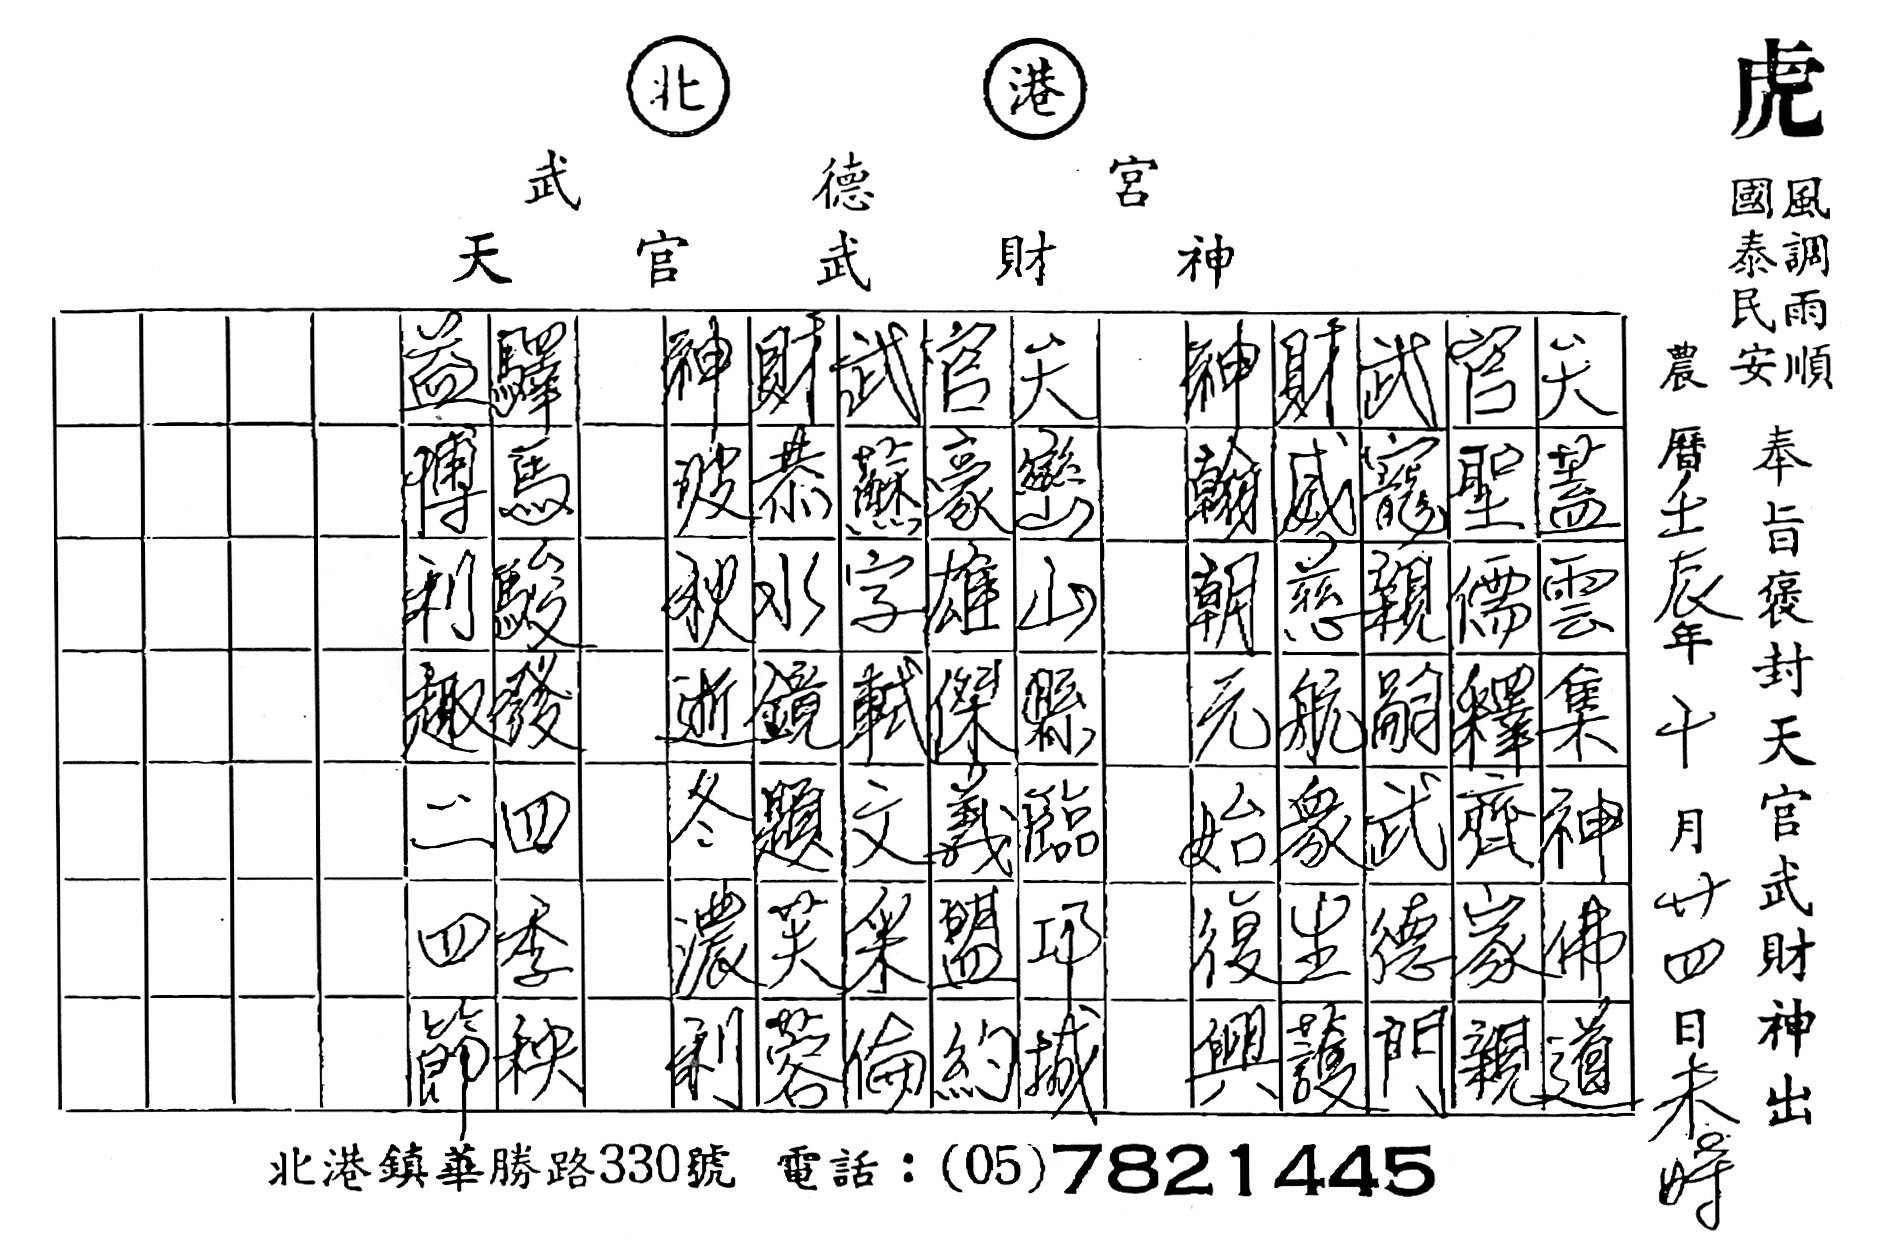 北港
武德宮
天官武財神
虎
風調雨順
國泰民安
奉旨褒封天官武財神出
農曆壬辰年十月廿四日未時
天蓋雲集神佛道
官聖儒釋齊家親
武寵親嗣武德門
財威慈航眾生護
神翰朝元始復興
天巒山縣臨邛城
官豪雄傑義盟約
武蘇字軾文采倫
財恭水鏡題芙蓉
神玻秋逝冬濃利
驛馬駿發四季秧
益博利趣二四節
北港鎮華勝路330號 電話：(05)7821445